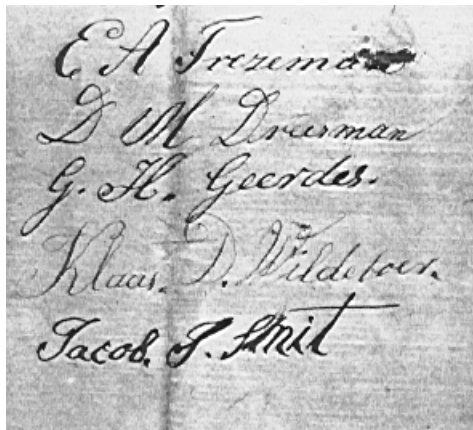 E A Trezeman
D M Dreesman
G. H. Geerdes.
Klaas. D. Wildeboer.
Jacob. J. Smit